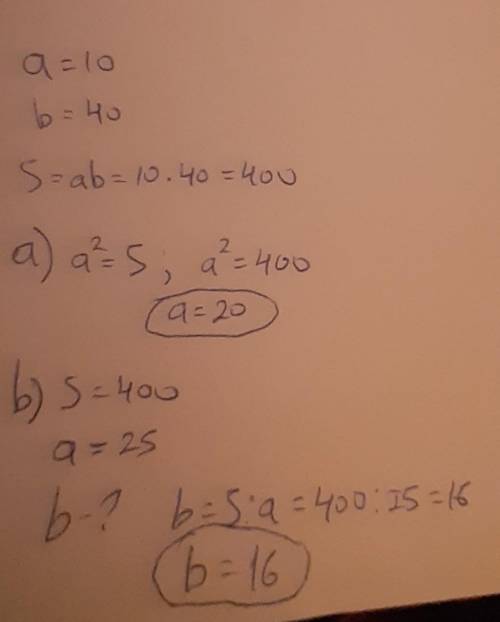 a=10
b=40
S=ab=10.40=400
a) a²=S; a²=400
a=20
b) S=400
a=25
b-? b=S:a=400:25=16
b=16